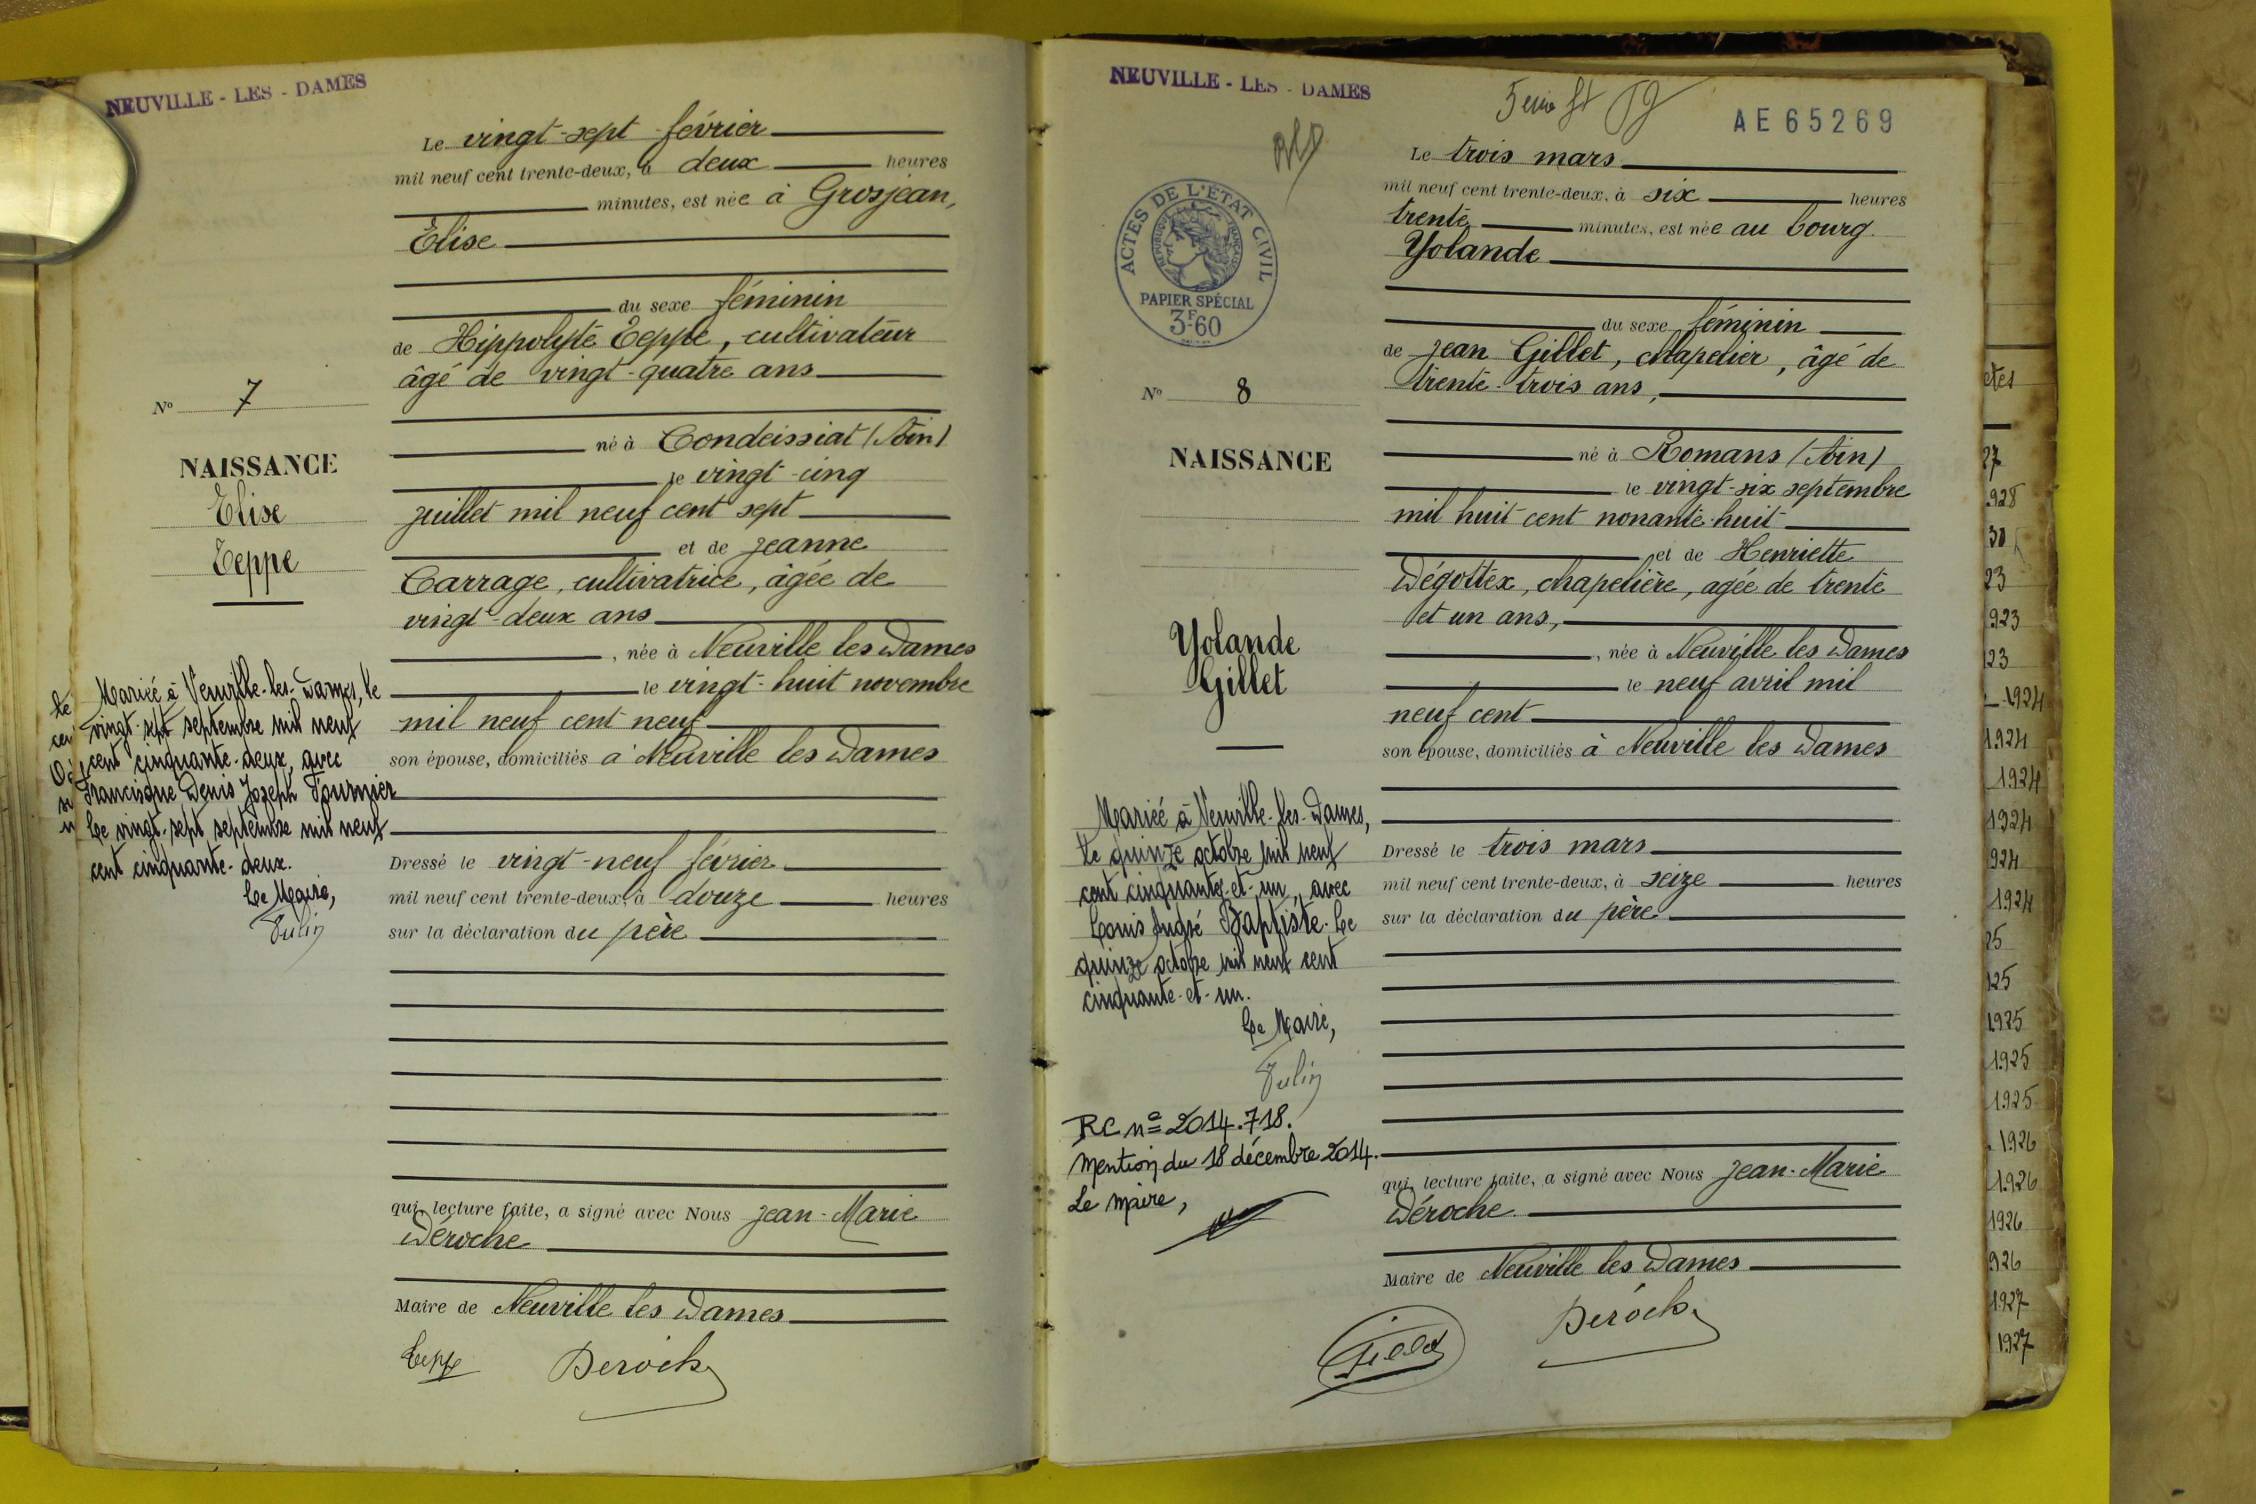 NEUVILLE - LES - DAMES
Le vingt-sept février
mil neuf cent trente-deux, à deux heures
minutes, est née à Grosjean,
Elise
du sexe féminin
de Hippolyte Teppe, cultivateur
âgé de vingt-quatre ans
né à Condeissiat (Ain)
le vingt-cinq
juillet mil neuf cent sept
et de Jeanne
Carrage, cultivatrice, âgée de
vingt-deux ans
, née à Neuville les Dames
le vingt-huit novembre
mil neuf cent neuf
son épouse, domiciliés à Neuville les Dames
Dressé le vingt-neuf février
mil neuf cent trente-deux, à douze heures
sur la déclaration du père
qui, lecture faite, a signé avec Nous Jean-Marie
Déroche
Maire de Neuville les Dames
Teppe Deroche
No 7
NAISSANCE
Elise
Teppe
Mariée à Neuville-les-Dames, le
vingt-sept septembre mil neuf
cent cinquante-deux, avec
Francisque Denis Joseph Fournier
Le vingt-sept septembre mil neuf
cent cinquante-deux.
Le Maire,
NEUVILLE - LES - DAMES
AE65269
ACTES DE L'ÉTAT CIVIL
RÉPUBLIQUE FRANÇAISE
PAPIER SPÉCIAL
3F60
Le trois mars
mil neuf cent trente-deux, à six heures
trente minutes, est née au bourg
Yolande
du sexe féminin
de Jean Gillet, chapelier, âgé de
trente-trois ans,
né à Romans (Ain)
le vingt-six septembre
mil huit cent nonante-huit
et de Henriette
Dégottex, chapelière, agée de trente
et un ans,
, née à Neuville les Dames
le neuf avril mil
neuf cent
son épouse, domiciliés à Neuville les Dames
Dressé le trois mars
mil neuf cent trente-deux, à seize heures
sur la déclaration du père
qui, lecture faite, a signé avec Nous Jean-Marie
Déroche
Maire de Neuville les Dames
Gillet Déroche
No 8
NAISSANCE
Yolande
Gillet
Mariée à Neuville-les-Dames,
le quinze octobre mil neuf
cent cinquante-et-un, avec
Louis André Baptiste. Le
quinze octobre mil neuf cent
cinquante-et-un.
Le Maire,
RC no 2014.718.
Mention du 18 décembre 2014.
Le Maire,
27
928
30
23
923
23
1924
1924
1924
1924
924
1924
25
125
1925
1925
1925
1926
1926
1926
926
1927
1927